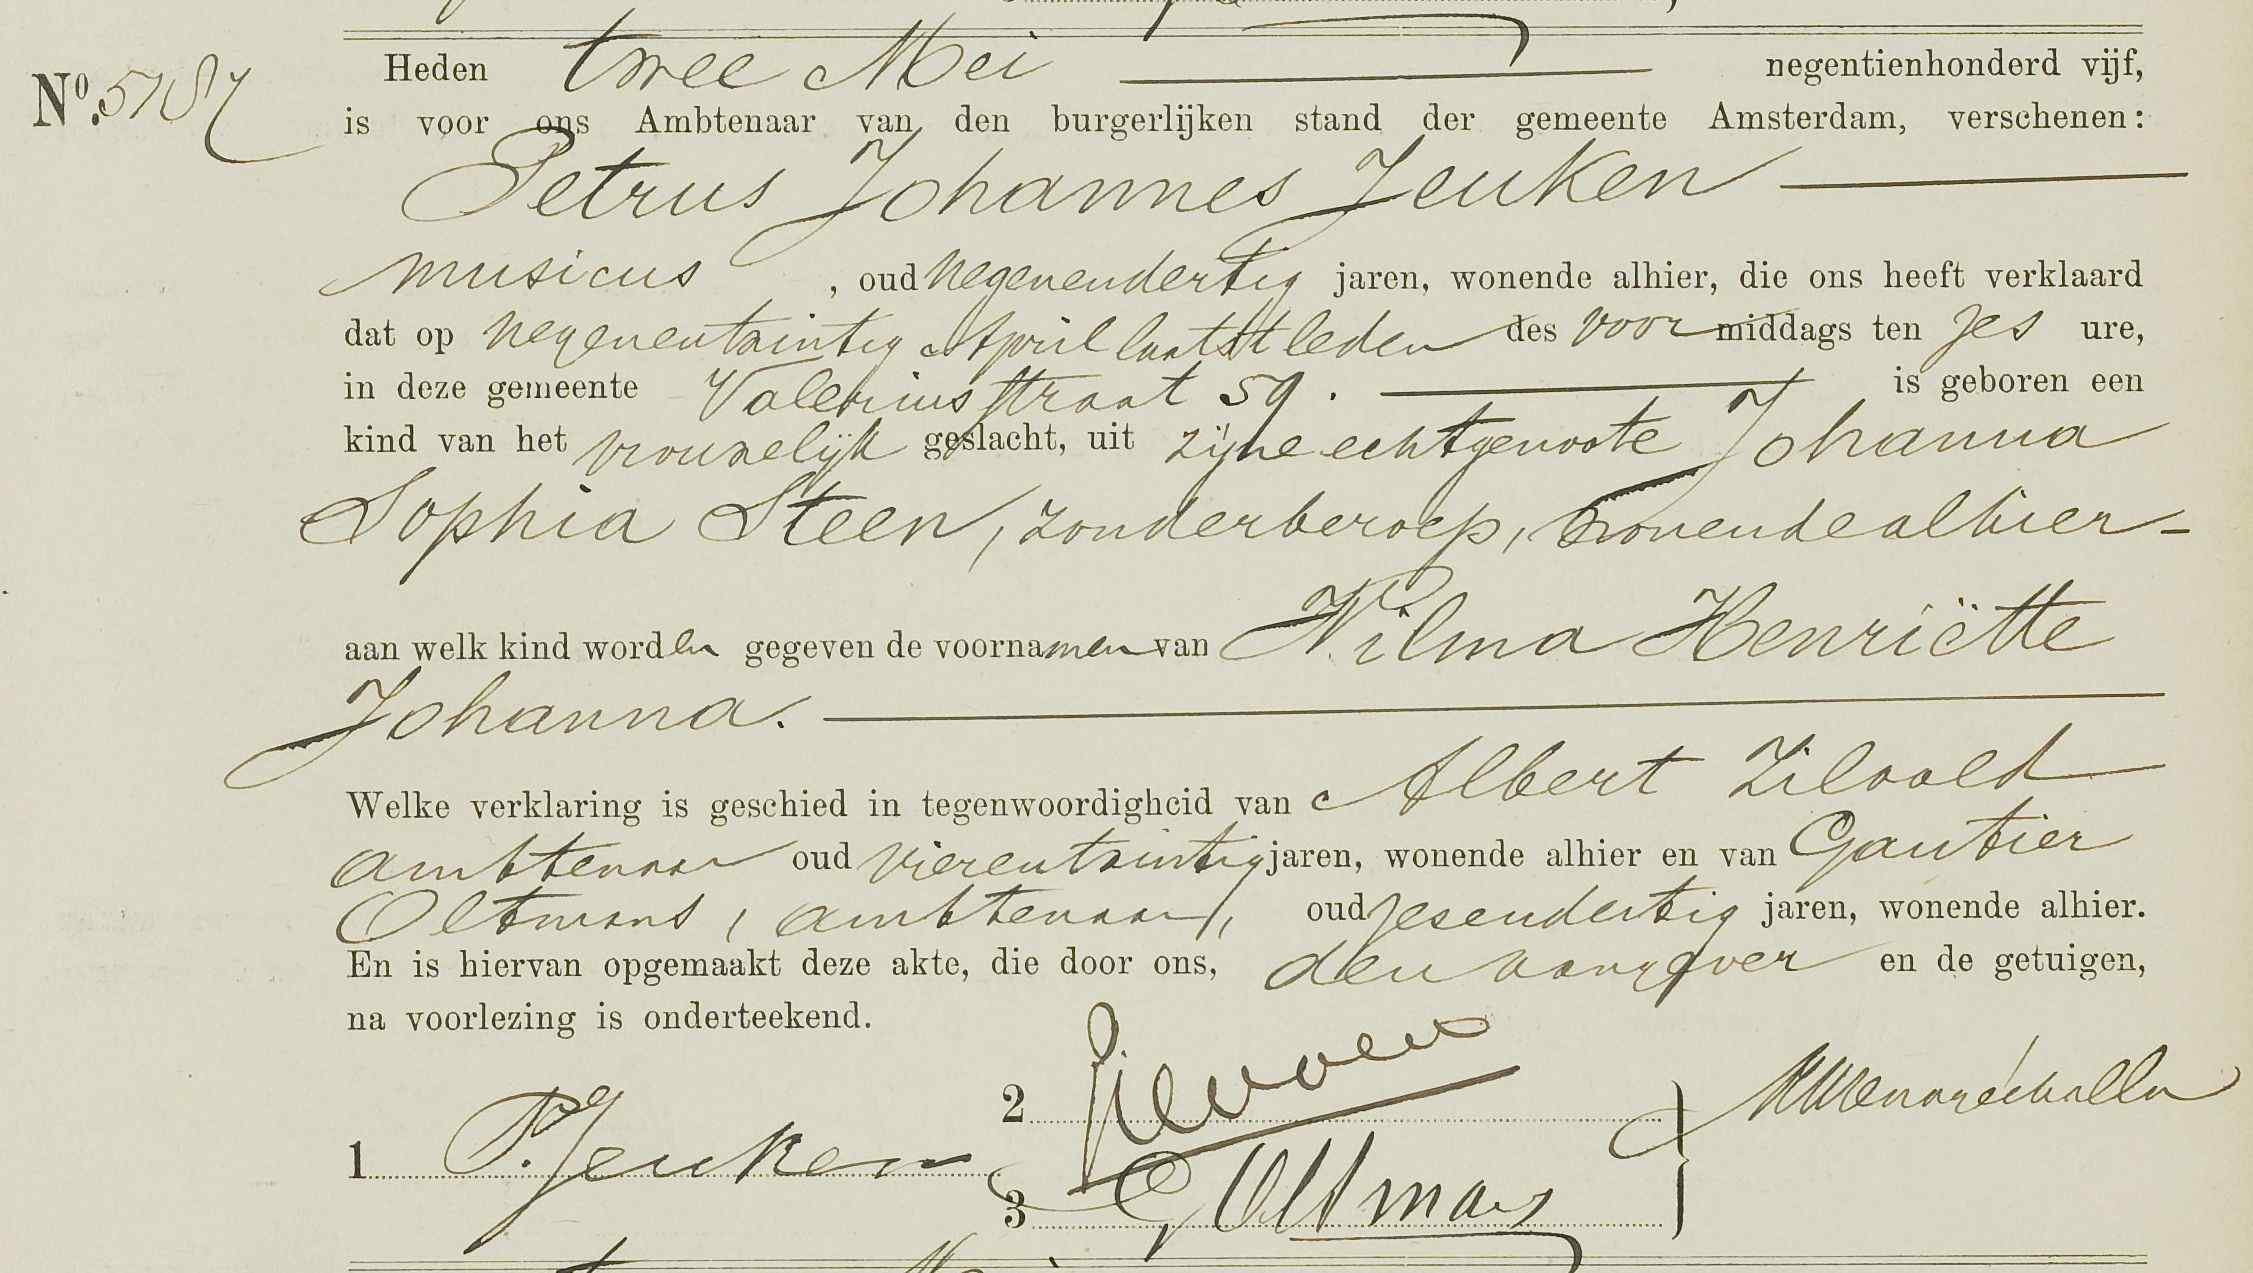 Nº. 5787
Heden twee Mei negentienhonderd vijf,
is voor ons Ambtenaar van den burgerlijken stand der gemeente Amsterdam, verschenen:
Petrus Johannes Jeuken
musicus, oud negenendertig jaren, wonende alhier, die ons heeft verklaard
dat op negenentwintig April laatstleden des voormiddags ten zes ure,
in deze gemeente Valeriusstraat 59. is geboren een
kind van het vrouwelijk geslacht, uit zijne echtgenoote Johanna
Sophia Steen, zonder beroep, wonende alhier
aan welk kind worden gegeven de voornamen van Wilma Henriëtte
Johanna.
Welke verklaring is geschied in tegenwoordigheid van Albert Zilvold
ambtenaar oud vierentwintig jaren, wonende alhier en van Gautier
Oltmans, ambtenaar, oud zesendertig jaren, wonende alhier.
En is hiervan opgemaakt deze akte, die door ons, den aangever en de getuigen,
na voorlezing is onderteekend.
2
1 P. Jeuken
3 G, Oltmans